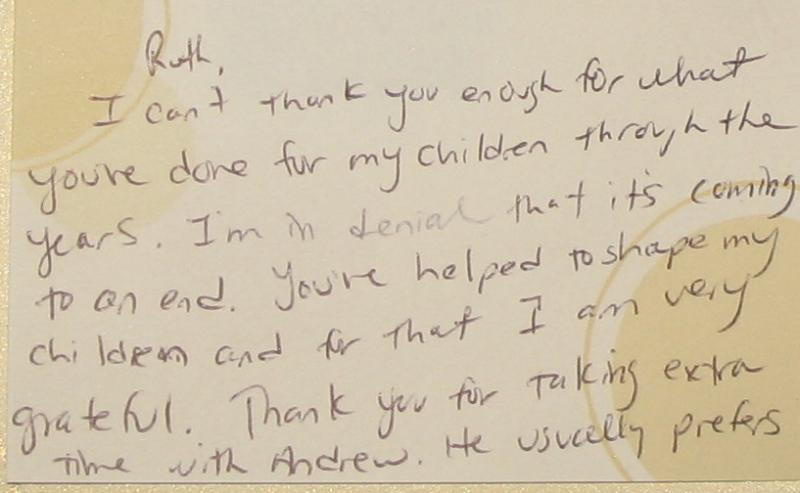 Ruth,
I can't thank you enough for what
you've done for my children through the
years. I'm in denial that it's coming
to an end. You've helped to shape my
children and for that I am very
grateful. Thank you for taking extra
time with Andrew. He usually prefers